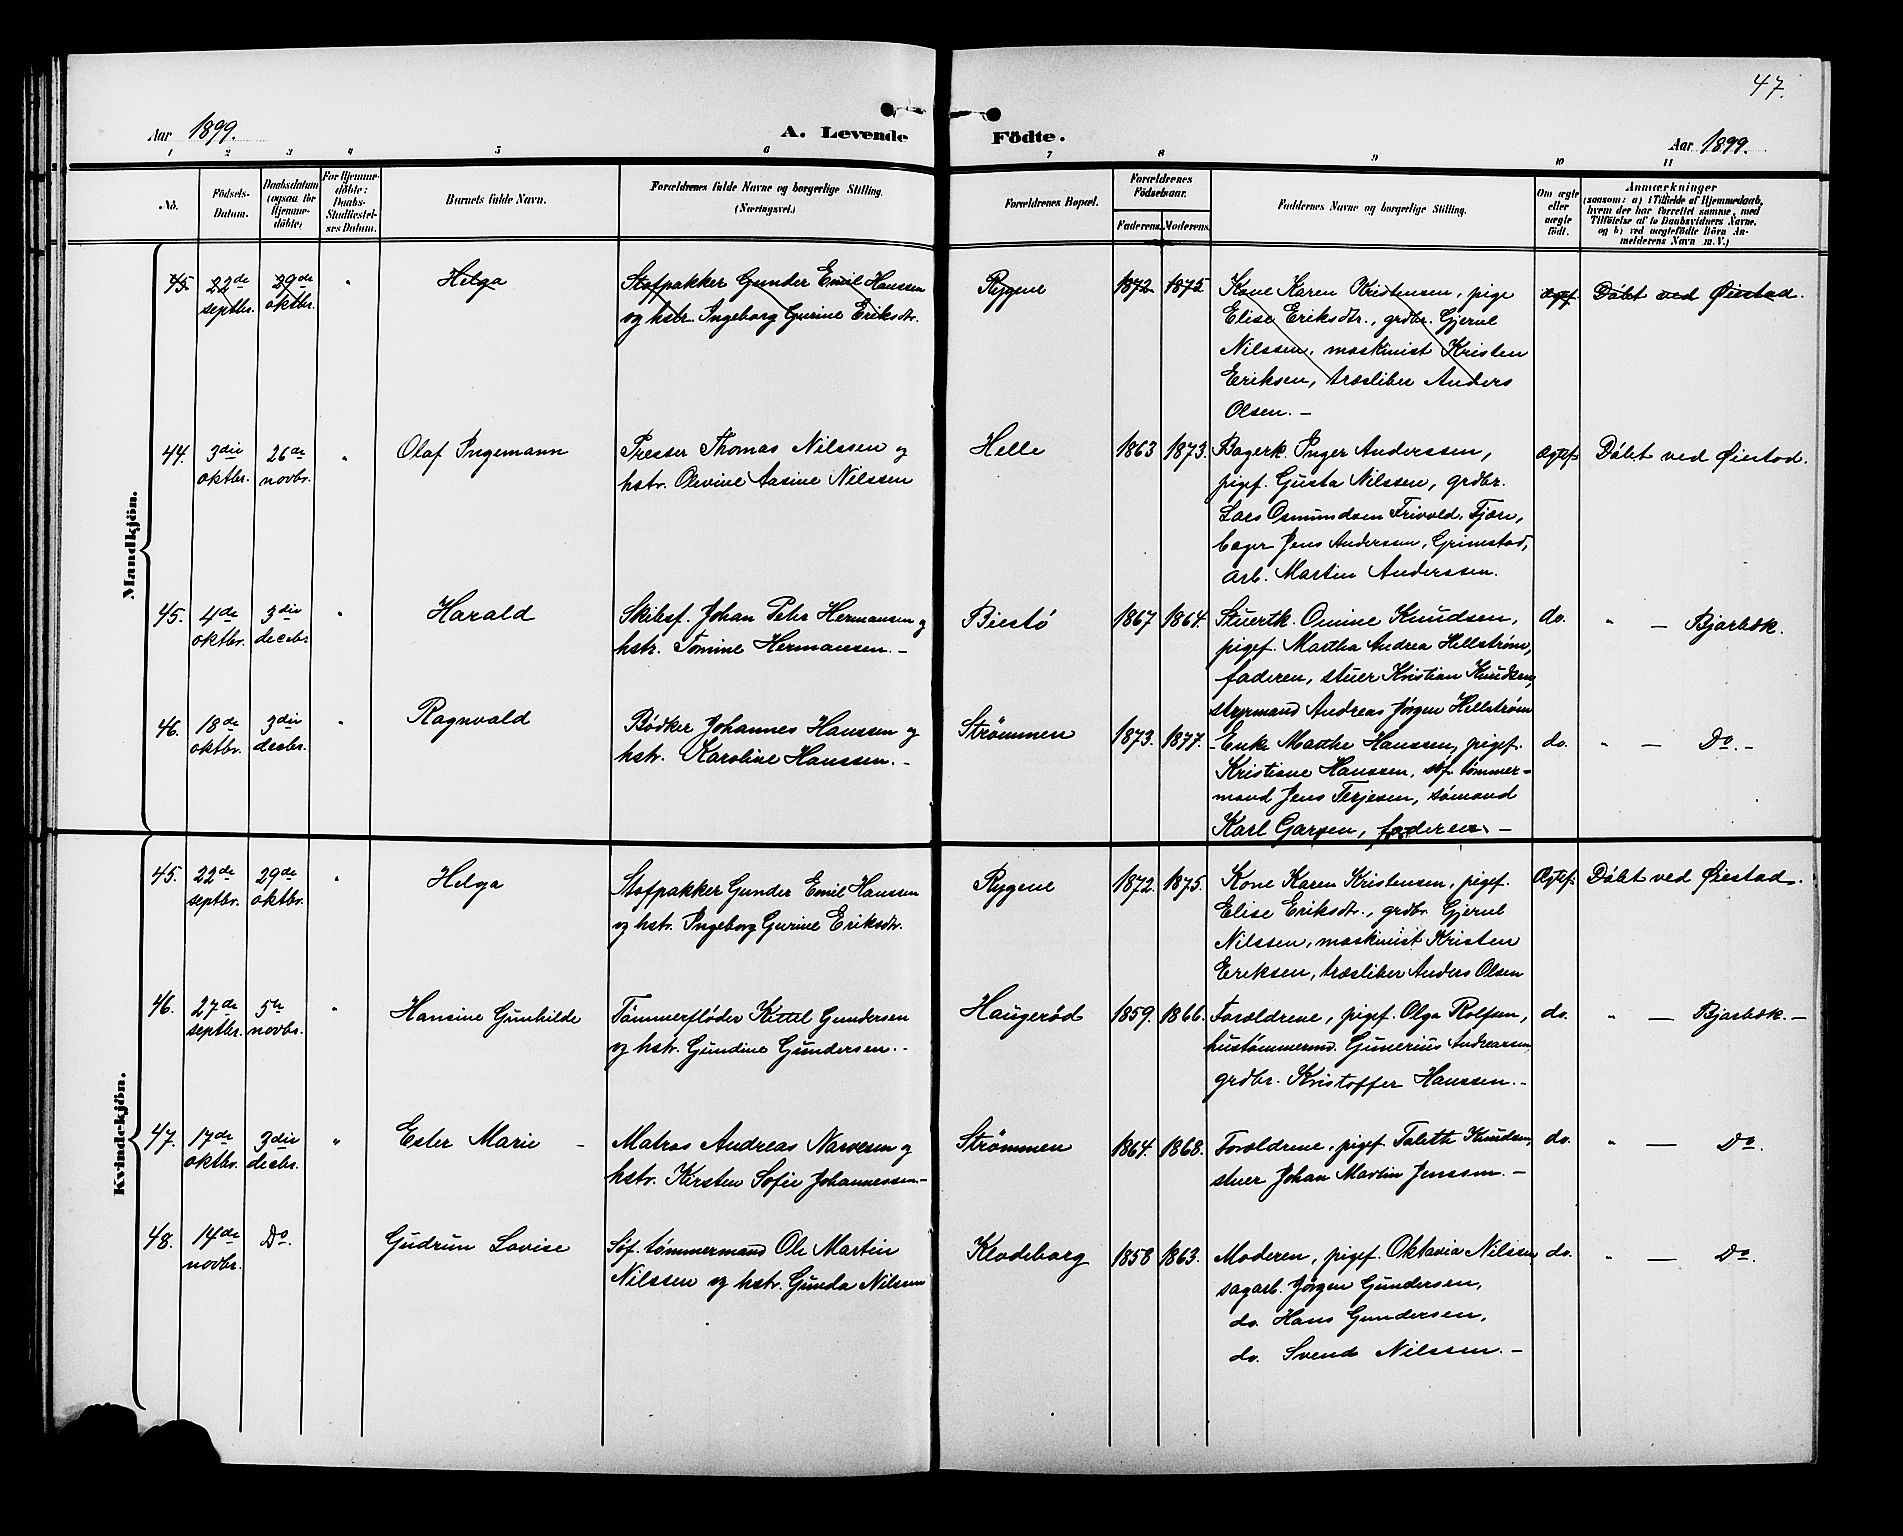 47.
Aar 1899.
A. Levende Födte.
Aar 1899.
1 2 3 4 5 6 7 8 9 10 11
No.
Födsels-
Datum.
Daabsdatum
(ogsaa for
Hjemme-
döbte)
For Hjemme-
döbte:
Daabs-
Stadfæstel-
ses Datum.
Barnets fulde Navn.
Forældrenes fulde Navne og borgerlige Stilling.
(Næringsvei.)
Forældrenes Bopæl.
Forældrenes
Födselsaar.
Faderens. Moderens.
Faddernes Navne og borgerlige Stilling.
Om ægte
eller
uægte
födt.
Anmærkninger
(saasom: a) i Tilfælde af Hjemmedaab,
hvem der har forrettet samme, med
Tilföielse af to Daabsvidners Navne,
og b) ved uægtefödte Börn An-
melderens Navn m. V.)
Mandkjön.
45. 22de septbr. 29de oktbr. " Helga
Stofpakker Gunder Emil Hanssen
og hstr. Ingeborg Gurine Eriksdtr.
Rygene 1872 1875.
Kone Karen Kristensen, pige
Elise Eriksdtr., grdbr. Gjerul
Nilssen, maskinist Kristen
Eriksen, træsliber Anders
Olsen. –
ægtef. Döbt ved Øiestad.
44. 3die oktbr. 26de novbr. " Olaf Ingemann
Presser Thomas Nilssen og
hstr. Olevine Aasine Nilssen
Helle 1863 1873.
Bagerk. Inger Anderssen,
pigef. Gusta Nilssen, grdbr.
Lars Osmundsen Frivold, Fjære,
bager Jens Andersen, Grimstad,
arb. Martin Anderssen.
Ægtef. Döbt ved Øiestad.
45. 4de oktbr. 3die decbr. " Harald
Skibsf. Johan Peter Hermansen og
hstr. Tomine Hermansen. –
Biestø 1867 1864.
Stuertk. Omine Knudsen,
pigef. Martha Andrea Hellstrøm,
faderen, stuer Kristian Knudsen,
styrmand Andreas Jørgen Hellstrøm
do. " — Bjorbæk.
46. 18de oktbr. 3die decbr. " Ragnvald
Bödker Johannes Hanssen og
hstr. Karoline Hanssen. –
Strömmen 1873. 1877.
– Enke Marthe Hanssen, pigef.
Kristiane Hanssen, söf. tömmer-
mand Jens Terjesen, sömand
Karl Garsen, faderen. –
do. " — Do. –
Kvindekjön.
45. 22de septbr. 29de oktbr. " Helga
Stofpakker Gunder Emil Hanssen
og hstr. Ingeborg Gurine Eriksdtr.
Rygene 1872. 1875.
Kone Karen Kristensen, pigef.
Elise Eriksdtr., grdbr. Gjerul
Nilssen, maskinist Kristen
Eriksen, træsliber Anders Olsen
Ægtef. Döbt ved Øiestad.
46. 27de septbr. 5te novbr. " Hansine Gunhilde
Tömmerflöder Kittil Gundersen
og hstr. Gundine Gundersen. –
Haugeröd 1859. 1866.
Forældrene, pigef. Olga Rolfsen,
hustömmermd. Gunerius Andreasen,
grdbr. Kristoffer Hanssen. –
do. " — Bjorbæk. –
47. 17de oktbr. 3die decbr. " Ester Marie –
Matros Andreas Narvesen og
hstr. Kirsten Sofie Johannessen –
Strömmen 1864. 1868.
Forældrene, pigef. Talette Knudsen,
stuer Johan Martin Jenssen. –
do. " — Do.
48. 14de novbr. Do. Gudrun Lovise
Söf. tömmermand Ole Martin
Nilssen og hstr. Gunda Nilssen
Klodeborg 1858 1863.
Moderen, pigef. Oktavia Nilssen
sagarb. Jörgen Gundersen,
do. Hans Gundersen,
do. Svend Nilssen. –
do. " — Do.